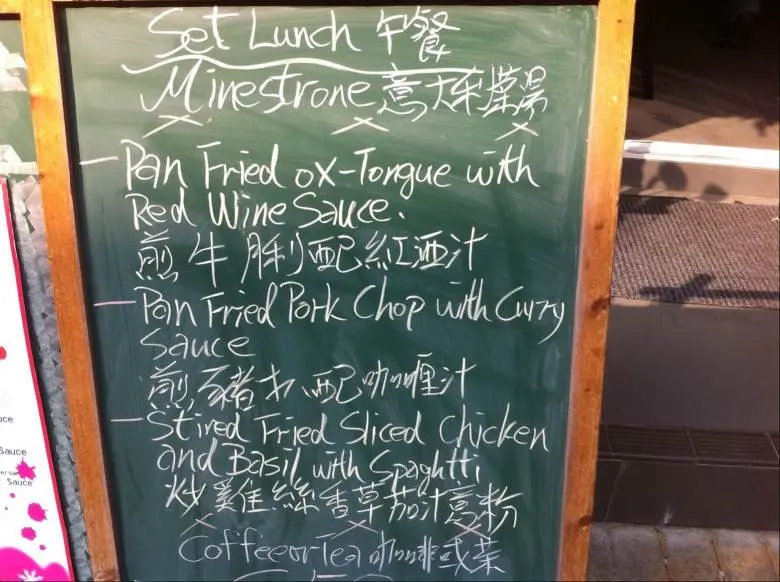 Set Lunch 午餐
Minestrone 意大利雜菜湯
Pan Fried ox-Tongue with
Red Wine Sauce.
煎牛脷配紅酒汁
Pan Fried Pork Chop with Curry
Sauce
煎豬扒配咖喱汁
Stired Fried Sliced Chicken
and Basil with Spaghtti
炒雞絲香草茄汁意粉
Coffee or Tea 咖啡或茶
uce
Sauce
Sauce